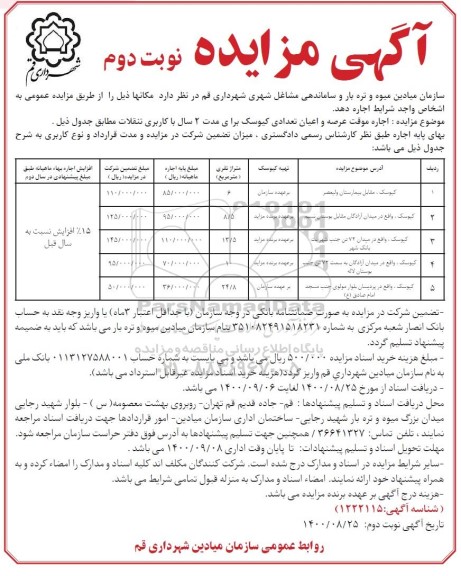 آگهی مزایده نوبت دوم
شهرداری قم
سازمان میادین میوه و تره بار و ساماندهی مشاغل شهری شهرداری قم در نظر دارد مکانها ذیل را از طریق مزایده عمومی به
اشخاص واجد شرایط اجاره دهد.
موضوع مزایده : اجاره موقت عرصه و اعیان تعدادی کیوسک برای مدت ۲ سال با کاربری تنقلات مطابق جدول ذیل .
بهای پایه اجاره طبق نظر کارشناس رسمی دادگستری ، میزان تضمین شرکت در مزایده و مدت قرارداد و نوع کاربری به شرح
جدول ذیل می باشد:
ردیف آدرس موضوع مزایده تهیه کیوسک متراژ تقری (مترمربع) مبلغ پایه اجاره ماهیانه(ریال) مبلغ تضمین شرکت در مزایده(ریال) افزایش اجاره بهاء ماهیانه طبق مبلغ پیشنهادی در سال دوم
۱ کیوسک ، مقابل بیمارستان ولیعصر برعهده سازمان ۶ ۸۵/۰۰۰/۰۰۰ ۱۱۰/۰۰۰/۰۰۰ ۱۵٪ افزایش نسبت به سال قبل
۲ کیوسک ، واقع در میدان آزادگان مقابل بوستان برعهده برنده مزایده ۸/۵ ۹۵/۰۰۰/۰۰۰ ۱۲۵/۰۰۰/۰۰۰
۳ کیوسک ، واقع در میدان ۷۲ تن جنب بانک شهر برعهده برنده مزایده ۱۳/۵ ۱۱۰/۰۰۰/۰۰۰ ۱۴۵/۰۰۰/۰۰۰
۴ کیوسک ، واقع در میدان آزادگان به سمت ۷۲ تن جنب بوستان لاله برعهده برنده مزایده ۷۰/۰۰۰/۰۰۰ ۹۵/۰۰۰/۰۰۰
۵ کیوسک ، واقع در پردیسان بلوار مولوی جنب مسجد امام صادق (ع) برعهده سازمان ۲۴/۸ ۳۶/۰۰۰/۰۰۰ ۵۰/۰۰۰/۰۰۰
-تضمین شرکت در مزایده به صورت ضمانتنامه بانکی در وجه سازمان (با حداقل اعتبار ۳ماه) یا واریز وجه نقد به حساب
بانک انصار شعبه مرکزی به شماره ۳۵۱۰۸۲۴۹۱۵۱۸۲۳۱ بنام سازمان میوه و تره بار می باشد که باید به ضمیمه
پیشنهاد تسلیم گردد.
- مبلغ هزینه خرید اسناد مزایده ۵۰۰/۰۰۰ ریال می باشد و می بایست به شماره حساب ۰۱۱۳۱۲۷۵۸۸۰۰۱ بانک ملی
به نام سازمان میادین شهرداری قم واریز گردد(هزینه خرید اسناد واریز شده غیرقابل استرداد می باشد).
- دریافت اسناد از مورخ ۱۴۰۰/۰۸/۲۵ لغایت ۱۴۰۰/۰۹/۰۶ می باشد.
محل دریافت اسناد و تسلیم پیشنهادها : قم- جاده قدیم قم تهران- روبروی بهشت معصومه( س ) - بلوار شهید رجایی
میدان بزرگ میوه و تره بار شهید رجایی- ساختمان اداری سازمان میادین- امور قراردادها جهت دریافت اسناد مراجعه
نمایند . تلفن تماس: ۳۶۶۴۱۳۲۷ / همچنین جهت تسلیم پیشنهادها به آدرس فوق دفتر حراست سازمان مراجعه شود.
مهلت تحویل اسناد و تسلیم پیشنهادات: تا پایان وقت اداری ۱۴۰۰/۰۹/۰۸ می باشد .
-سایر شرایط مزایده در اسناد و مدارک درج شده است. شرکت کنندگان مکلف اند کلیه اسناد و مدارک را امضاء کرده و به
همراه پیشنهاد خود ارائه نمایند. امضاء اسناد و مدارک به منزله قبول تمامی شرایط می باشد.
-هزینه درج آگهی بر عهده برنده مزایده می باشد.
( شناسه آگهی:۱۲۲۲۱۱۵)
تاریخ آگهی نوبت دوم: ۱۴۰۰/۰۸/۲۵
روابط عمومی سازمان میادین شهرداری قم